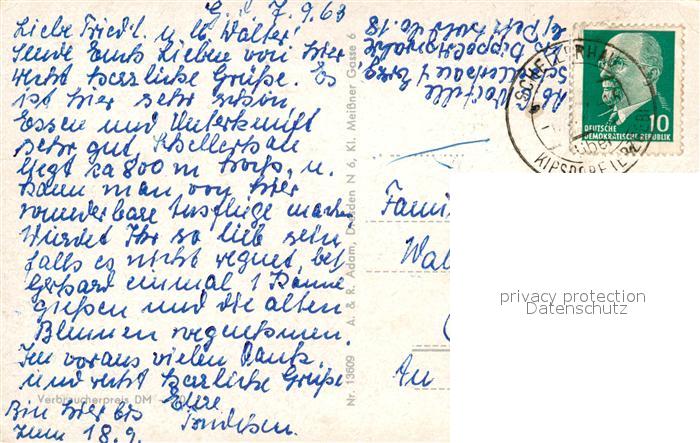 7.9.63
Liebe Friedl. u. lb. Walter!
Sende Euch Lieben von hier
recht herzliche Grüße. Es
ist hier sehr schön,
Essen und Unterkunft
sehr gut. Schellerhau
liegt ca 800 m hoch, u.
kann man von hier
wunderbare Ausflüge machen
Würdet Ihr so lieb sein
falls es nicht regnet, bei
Gerhard einmal 1 Kanne
gießen und die alten
Blumen wegnehmen.
Im voraus vielen Dank,
und recht herzliche Grüße
Verbraucherpreis DM
Eure
Bin hier bis
zum 18.9.
Nr. 13609 A. & R. Adam, Dresden N 6, Kl. Meißner Gasse 6
Abs.
Schellerhau Erzg
DEUTSCHE
DEMOKRATISCHE REPUBLIK
10
SCHELLERHAU
über
KIPSDORF
Famil
Wal
An
privacy protection
Datenschutz